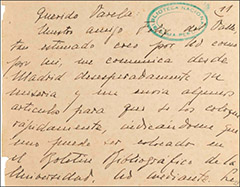 Querido Varela:
nuestro amigo del Valle,
tan estimado creo por Ud como
por mi, me comunica desde
Madrid desesperadamente su
miseria y me envia algunos
articulos para que se los coloque
rapidamente, indicandome que
uno puede ser colocado en
el Boletin Bibliografico de la
Universidad, Ud mediante. Le
BIBLIOTECA NACIONAL